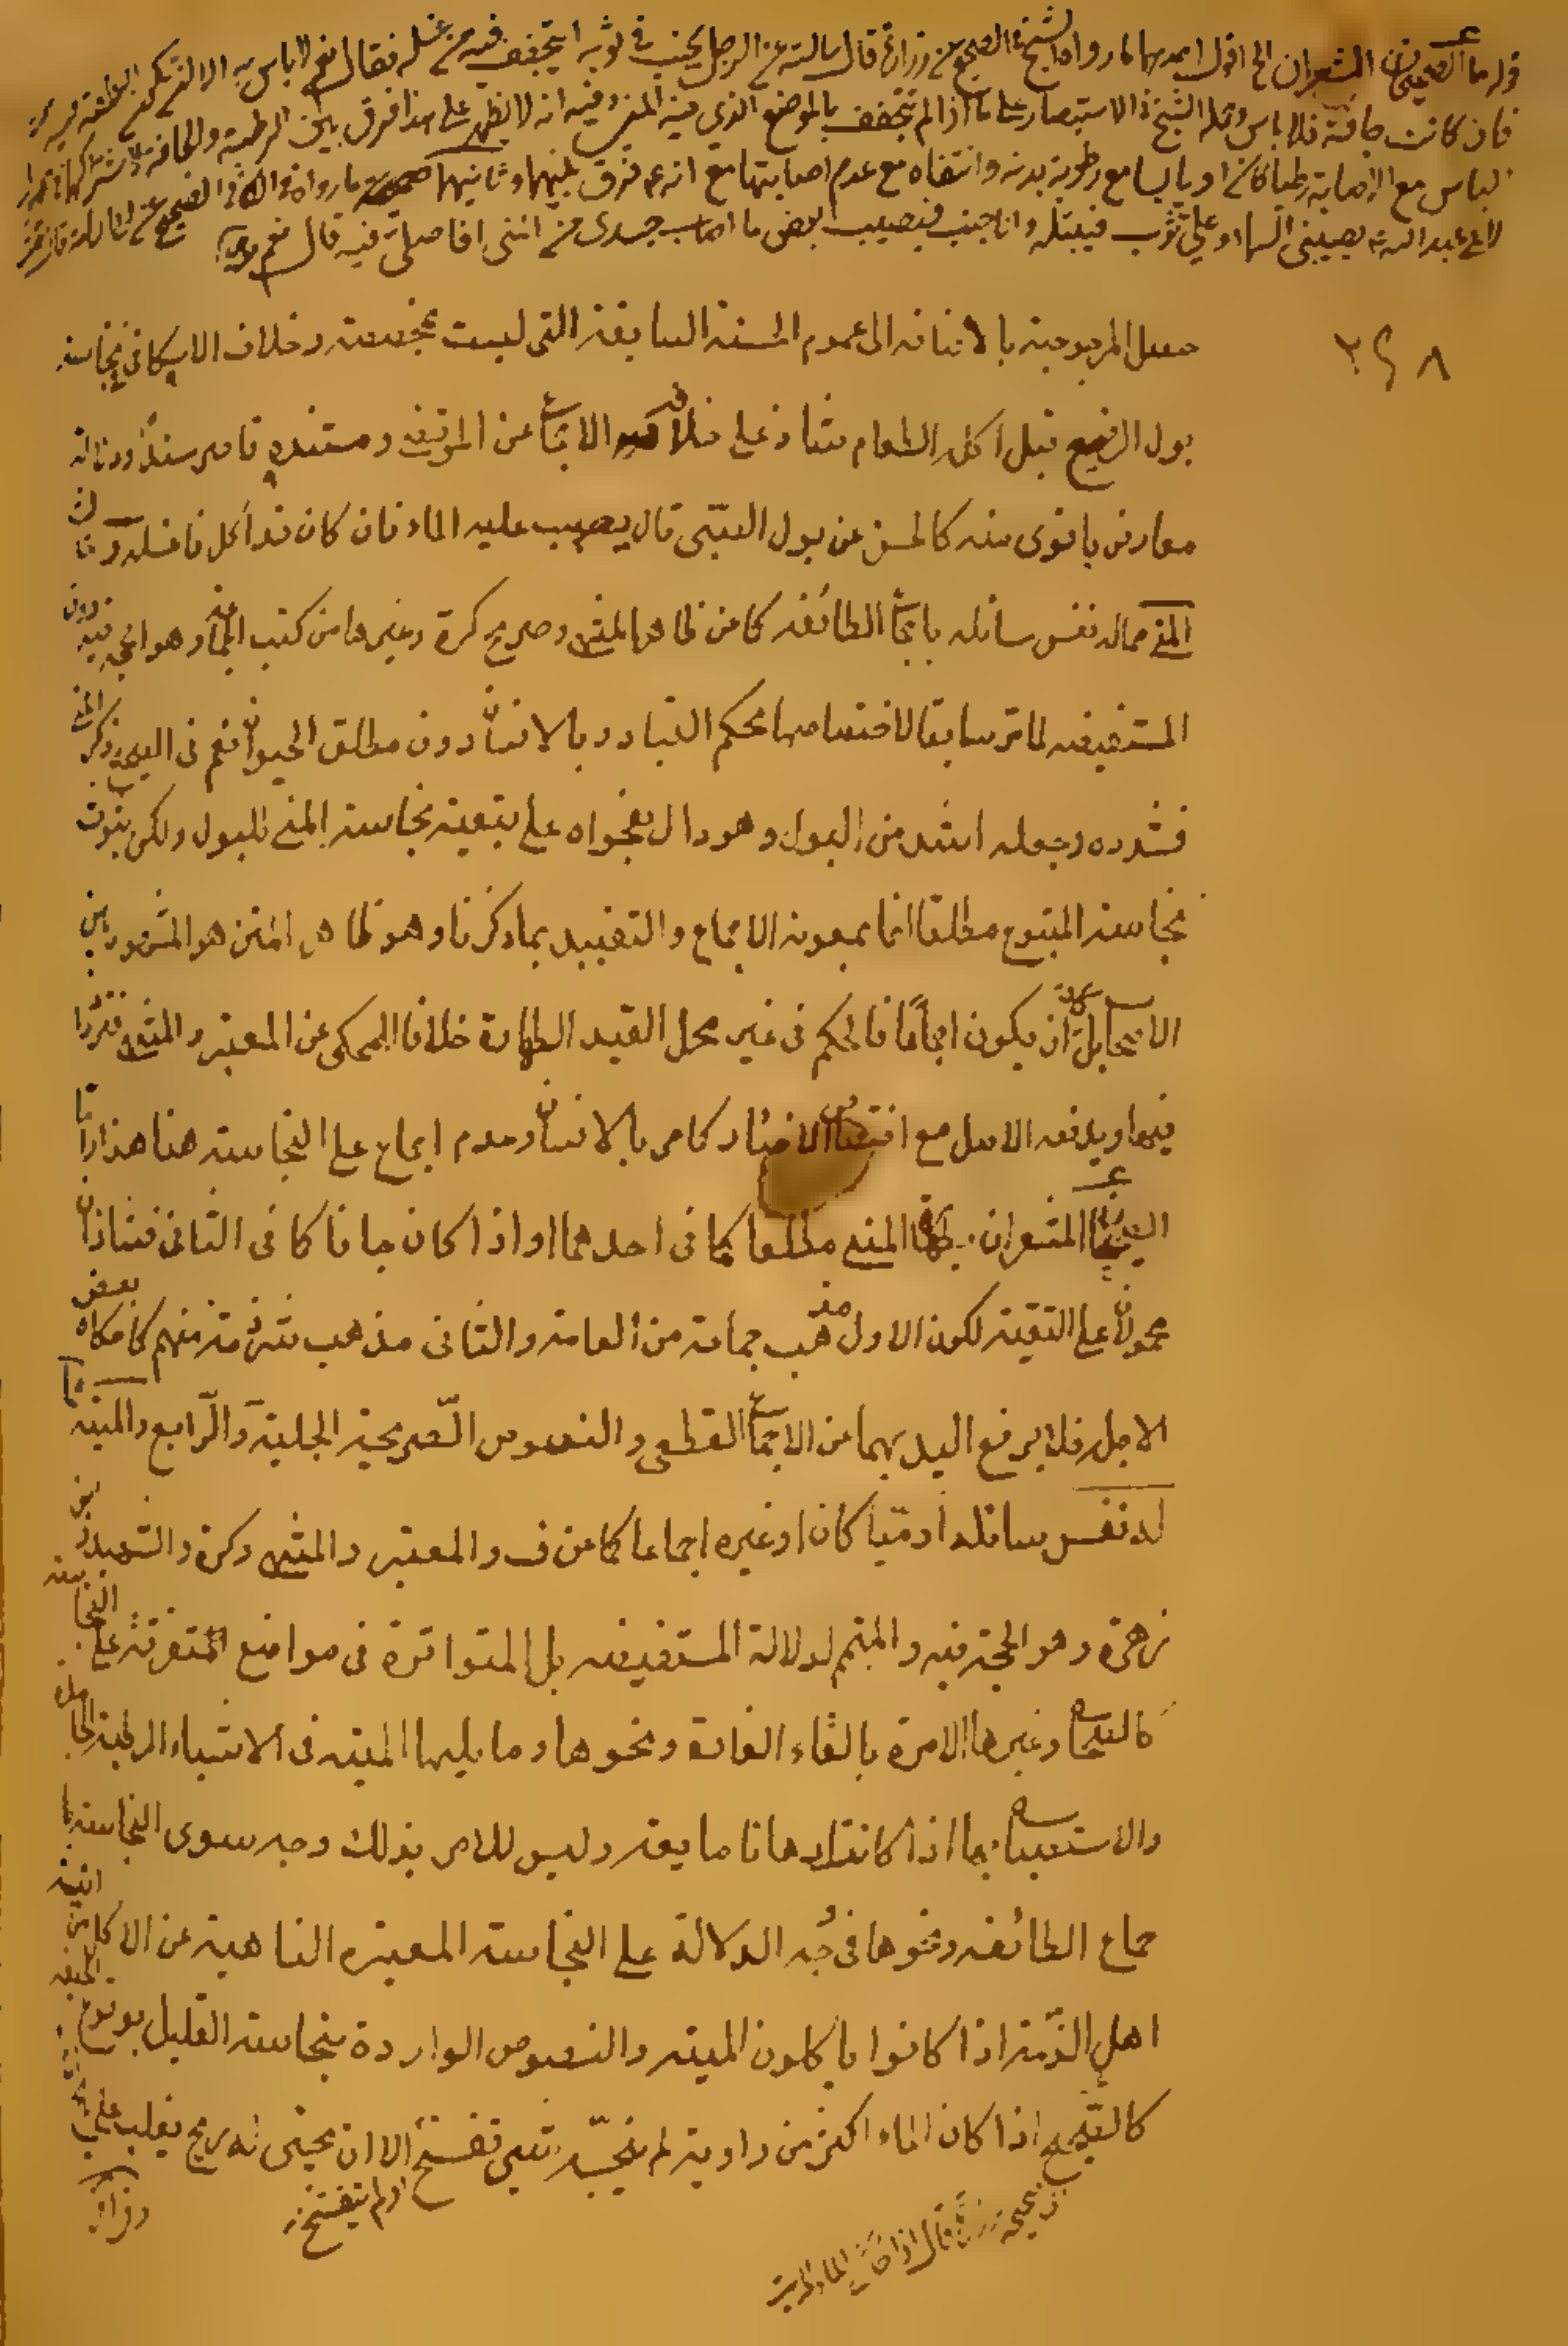 قوله ما الصحيحان المشعران الخ اقول احدهما ما رواه الشيخ في الصحيح عن زرارة قال سالته عن الرجل يجنب في ثوبه ايتجفف فيه من غسله فقال نعم لا باس به الا ان تكون النطفة فيه رطبة
فان كانت جافة فلا باس وحمله الشيخ في الاستبصار على ما اذا لم يتجفف بالموضع الذي فيه المني وفيه انه لا يظهر على هذا فرق بين الرطبة والجافة
الباس مع الاصابة رطبا كان او يابسا مع رطوبة بدنه وانتفاه مع عدم اصابتها مع انه ع فرق بينهما وثانيهما ما رواه في الصحيح عن
لابي عبد الله ع يصيبني السماء وعلي ثوب فيبتله وانا جنب فيصيب بعض ما اصاب جسدي من المني افاصلي فيه قال نعم
٢٩٨
معلل المرجوحية بالاضافة الى عموم الحسنة السابقة التي ليست بمخصصة وخلاف الاسكافي بنجاسة
بول الرضيع قبل اكل الطعام شاذ على خلافه الاجماع عن المرتضى ومستنده قاصر سندا ودلالة
معارض باقوى منه كالحسن عن بول الصبي قال يصب عليه الماء فان كان قد اكل فاغسله والثالث
المني مما له نفس سائلة باجماع الطائفة كما عن ظاهر المنتهى وصريح كرة وغيرها من كتب الجماعة وهو الحجة فيه دون
المستفيضة لما مر سابقا لاختصاصها بحكم التبادر بالانسان دون مطلق الحيوان نعم في الصحيح ذكر المني
فشدده وجعله اشد من البول وهو دال بفحواه على تبعية نجاسة المني للبول ولكن ثبوت
نجاسة المتبوع مطلقا انما بمعونة الاجماع والتقييد بما ذكرنا وهو ظاهر المتن هو المشهور بين
الاصحاب بل كاد ان يكون اجماعا فالحكم في غير محل القيد الطهارة خلافا للمحكي عن المعتبر والمنتهى فترددا
فيهما ويدفعه الاصل مع اختصاص الاخبار كما مر بالانسان وعدم اجماع على النجاسة هنا هذا واما
الصحيحان المشعران بطهارة المني مطلقا كما في احدهما او اذا كان جافا كما في الثاني فشاذان
محمولان على التقية لكون الاول مذهب جماعة من العامة والثاني مذهب شرذمة منهم كما حكاه بعض
الاجلة فلا يرفع اليد بهما عن الاجماع القطعي والنصوص الصريحة الجلية والرابع والميتة مما
له نفس سائلة ادميا كان او غيره اجماعا كما عن ف والمعتبر والمنتهى وكرة والشهيد وبني
زهرة وهو الحجة فيه والمتمم لدلالة المستفيضة بل المتواترة في مواضع المتفرقة على النجاسة
كالصحاح وغيرها الامرة بالقاء الفارة ونحوها وما يليها الميتة في الاشياء الرطبة الجامدة
والاستصباح بها اذا كانت ادهانا مايعة وليس للامر بذلك وجه سوى النجاسة با
جماع الطائفة ونحوها في وجه الدلالة على النجاسة المعتبرة الناهية عن الاكل من انية
اهل الذمة اذا كانوا ياكلون الميتة والنصوص الواردة بنجاسة القليل بوقوع الجيفة
كالصحيح اذا كان الماء اكثر من راوية لم ينجسه شيء تفسخ الا ان يجيئ له ريح يغلب على
او لم يتفسخ